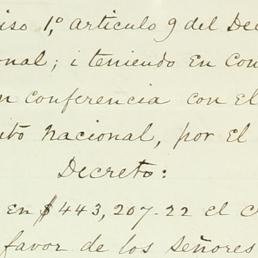 iso 1º, articulo 9 del De
onal; i teniendo en con
n conferencia con el
ito nacional, por el
Decreto:
en $443,207.22 el c
favor de los señores